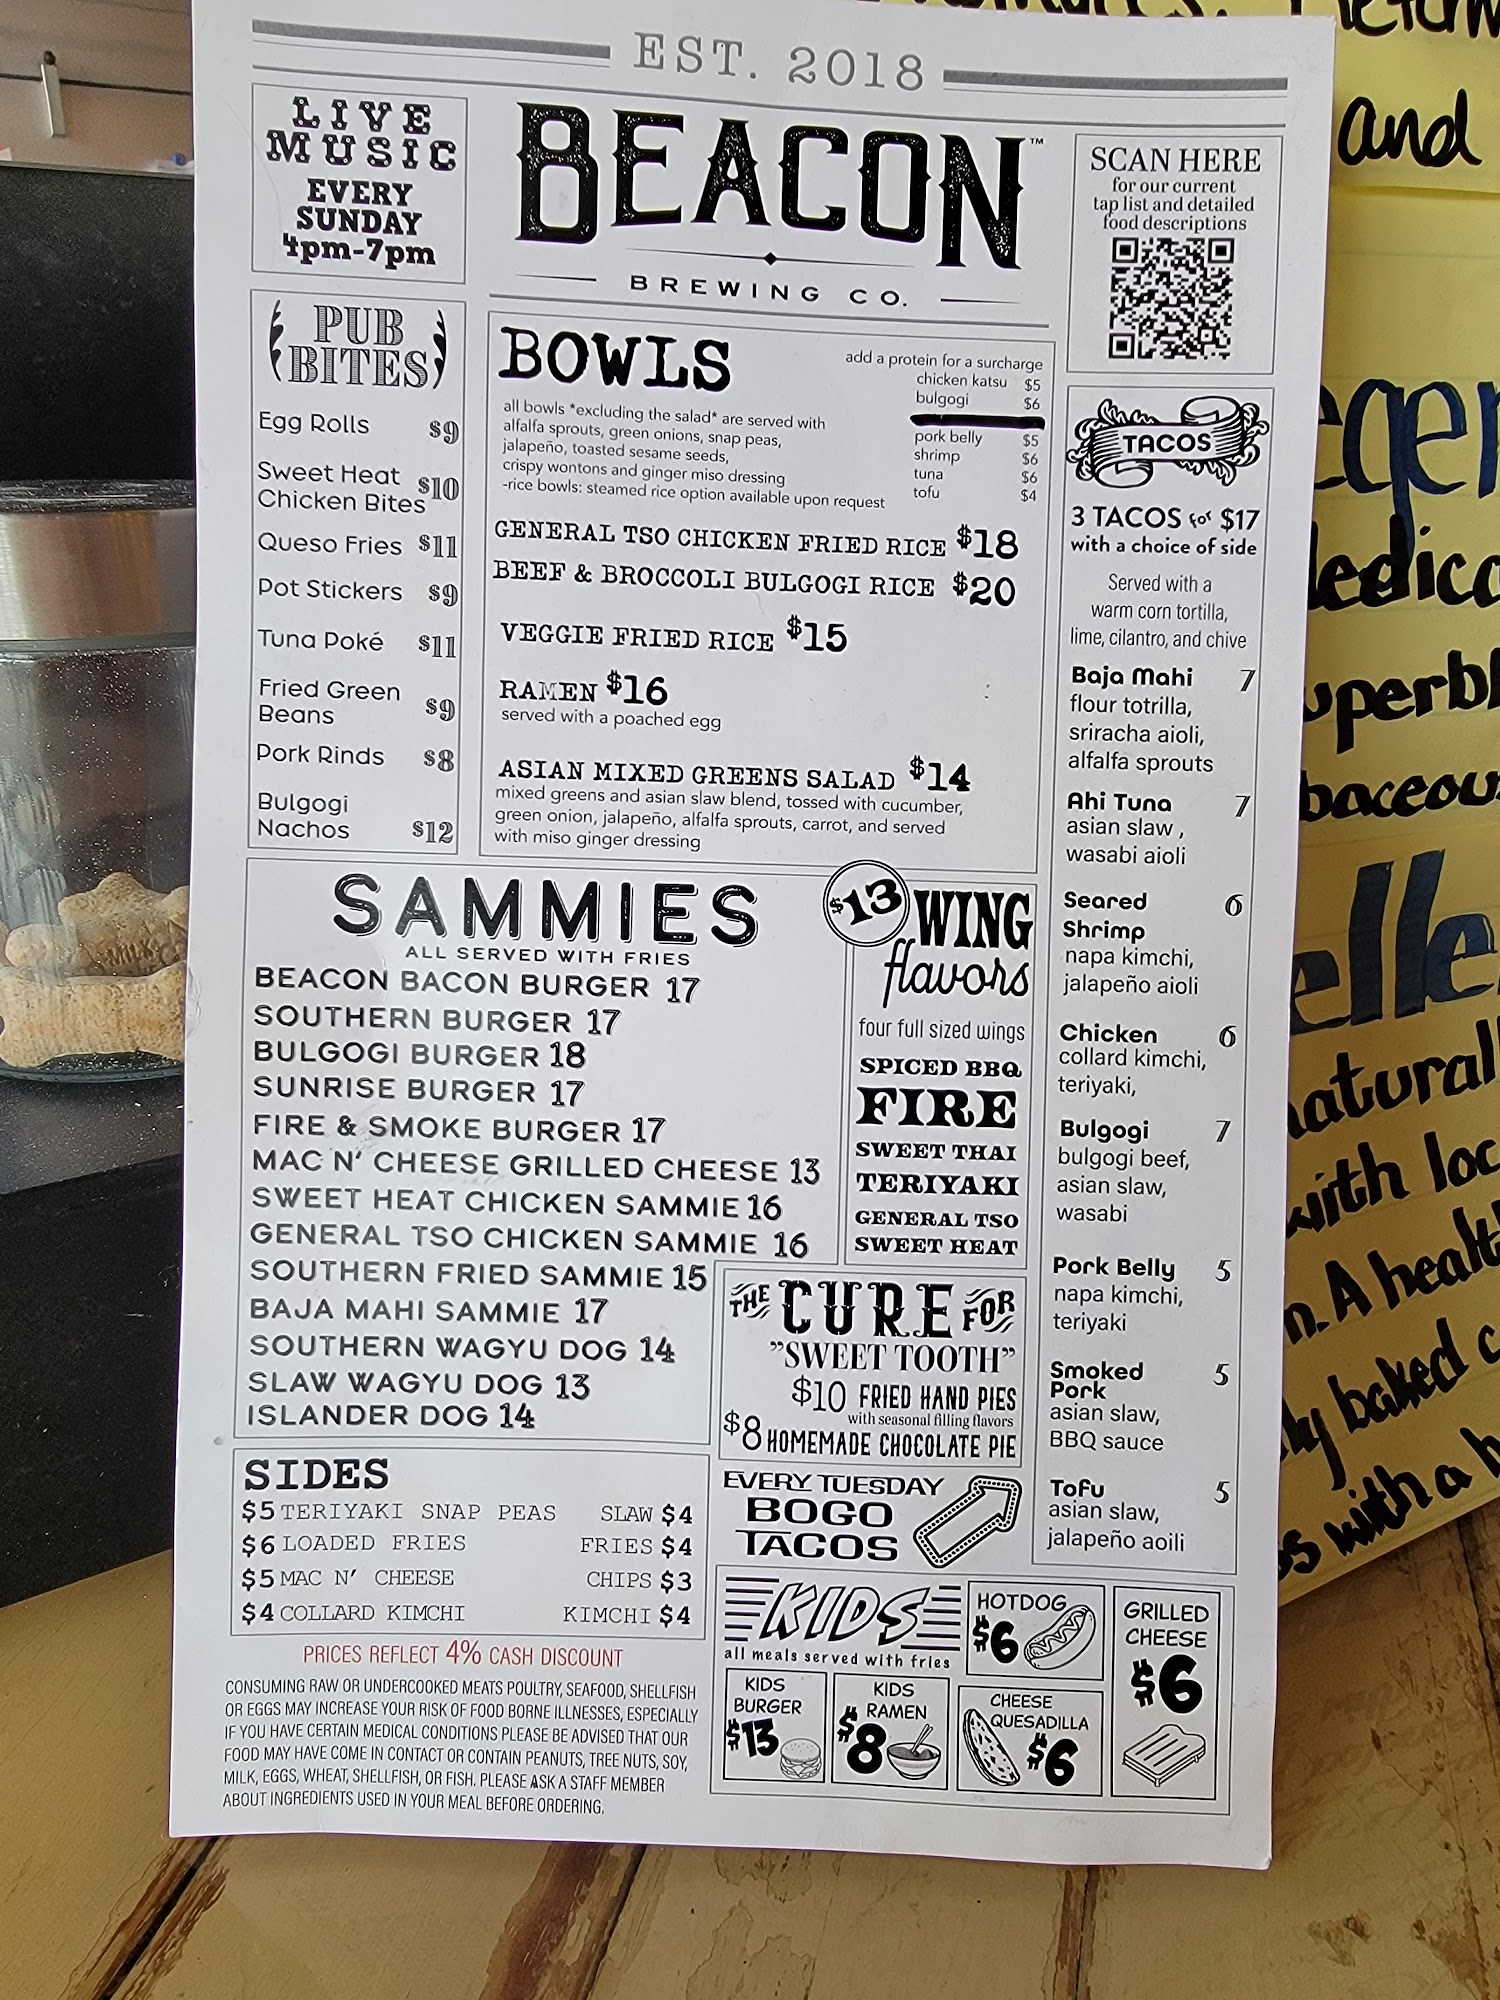 EST. 2018
LIVE
MUSIC
EVERY
SUNDAY
4pm-7pm
BEACON™
BREWING CO.
SCAN HERE
for our current
tap list and detailed
food descriptions
PUB
BITES
Egg Rolls $9
Sweet Heat
Chicken Bites $10
Queso Fries $11
Pot Stickers $9
Tuna Poké $11
Fried Green
Beans $9
Pork Rinds $8
Bulgogi
Nachos $12
BOWLS
all bowls *excluding the salad* are served with
alfalfa sprouts, green onions, snap peas,
jalapeño, toasted sesame seeds,
crispy wontons and ginger miso dressing
-rice bowls: steamed rice option available upon request
add a protein for a surcharge
chicken katsu $5
bulgogi $6
pork belly $5
shrimp $6
tuna $6
tofu $4
GENERAL TSO CHICKEN FRIED RICE $18
BEEF & BROCCOLI BULGOGI RICE $20
VEGGIE FRIED RICE $15
RAMEN $16
served with a poached egg
ASIAN MIXED GREENS SALAD $14
mixed greens and asian slaw blend, tossed with cucumber,
green onion, jalapeño, alfalfa sprouts, carrot, and served
with miso ginger dressing
TACOS
3 TACOS for $17
with a choice of side
Served with a
warm corn tortilla,
lime, cilantro, and chive
Baja Mahi 7
flour totrilla,
sriracha aioli,
alfalfa sprouts
Ahi Tuna 7
asian slaw ,
wasabi aioli
Seared 6
Shrimp
napa kimchi,
jalapeño aioli
Chicken 6
collard kimchi,
teriyaki,
Bulgogi 7
bulgogi beef,
asian slaw,
wasabi
Pork Belly 5
napa kimchi,
teriyaki
Smoked 5
Pork
asian slaw,
BBQ sauce
Tofu 5
asian slaw,
jalapeño aoili
SAMMIES
ALL SERVED WITH FRIES
BEACON BACON BURGER 17
SOUTHERN BURGER 17
BULGOGI BURGER 18
SUNRISE BURGER 17
FIRE & SMOKE BURGER 17
MAC N' CHEESE GRILLED CHEESE 13
SWEET HEAT CHICKEN SAMMIE 16
GENERAL TSO CHICKEN SAMMIE 16
SOUTHERN FRIED SAMMIE 15
BAJA MAHI SAMMIE 17
SOUTHERN WAGYU DOG 14
SLAW WAGYU DOG 13
ISLANDER DOG 14
$13 WING
flavors
four full sized wings
SPICED BBQ
FIRE
SWEET THAI
TERIYAKI
GENERAL TSO
SWEET HEAT
THE CURE FOR
"SWEET TOOTH"
$10 FRIED HAND PIES
with seasonal filling flavors
$8 HOMEMADE CHOCOLATE PIE
EVERY TUESDAY
BOGO
TACOS
SIDES
$5 TERIYAKI SNAP PEAS SLAW $4
$6 LOADED FRIES FRIES $4
$5 MAC N' CHEESE CHIPS $3
$4 COLLARD KIMCHI KIMCHI $4
PRICES REFLECT 4% CASH DISCOUNT
CONSUMING RAW OR UNDERCOOKED MEATS POULTRY, SEAFOOD, SHELLFISH
OR EGGS MAY INCREASE YOUR RISK OF FOOD BORNE ILLNESSES, ESPECIALLY
IF YOU HAVE CERTAIN MEDICAL CONDITIONS PLEASE BE ADVISED THAT OUR
FOOD MAY HAVE COME IN CONTACT OR CONTAIN PEANUTS, TREE NUTS, SOY,
MILK, EGGS, WHEAT, SHELLFISH, OR FISH. PLEASE ASK A STAFF MEMBER
ABOUT INGREDIENTS USED IN YOUR MEAL BEFORE ORDERING.
KIDS
all meals served with fries
HOTDOG
$6
GRILLED
CHEESE
$6
KIDS
BURGER
$13
KIDS
RAMEN
$8
CHEESE
QUESADILLA
$6
and
with
A
baked
with a
MILK